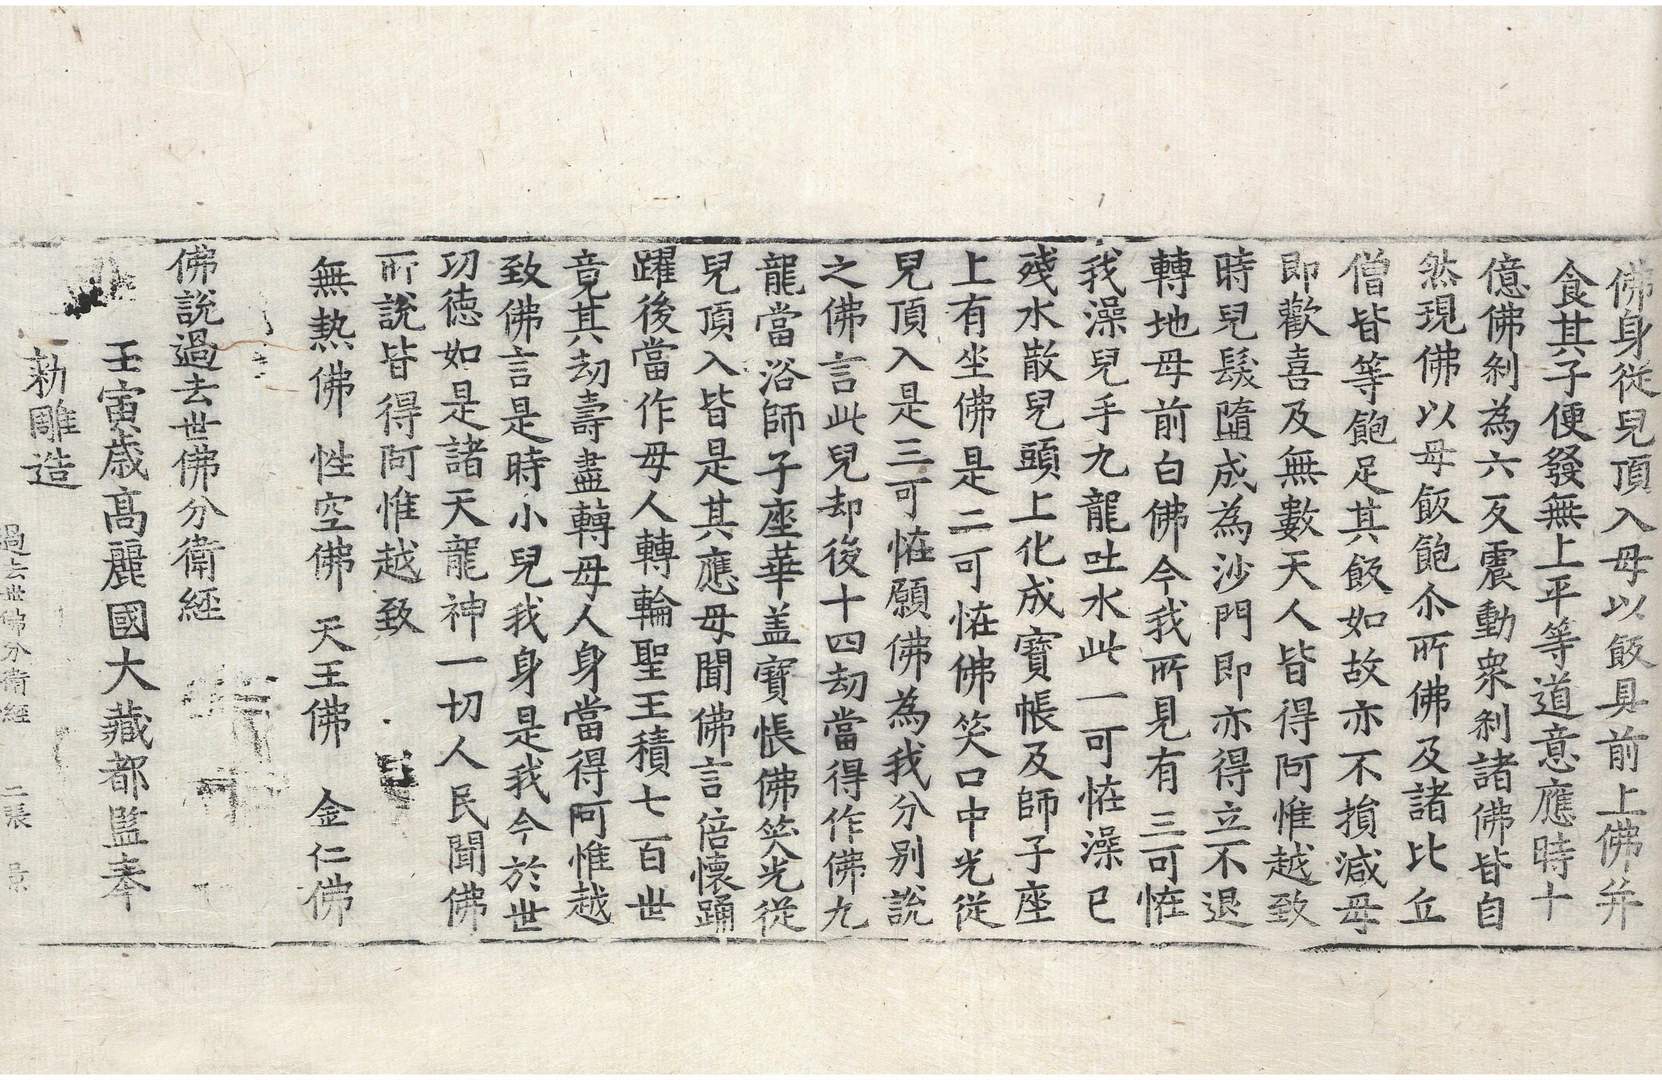 佛身從兒頂入母以飯具前上佛并
食其子便發無上平等道意應時十
億佛刹為六反震動衆刹諸佛皆自
然現佛以母飯飽尒所佛及諸比丘
僧皆等飽足其飯如故亦不損減母
即歡喜及無數天人皆得阿惟越致
時兒髮墮成為沙門即亦得立不退
轉地母前白佛今我所見有三可恠
我澡兒手九龍吐水此一可恠澡已
殘水散兒頭上化成寶帳及師子座
上有坐佛是二可恠佛笑口中光從
兒頂入是三可恠願佛為我分别說
之佛言此兒却後十四劫當得作佛九
龍當浴師子座華盖寶帳佛笑光從
兒頂入皆是其應母聞佛言倍懷踊
躍後當作母人轉輪聖王積七百世
竟其劫壽盡轉母人身當得阿惟越
致佛言是時小兒我身是我今於世
功德如是諸天龍神一切人民聞佛
所說皆得阿惟越致
無熱佛 性空佛 天王佛 金仁佛
佛說過去世佛分衛經
壬寅歳髙麗國大藏都監奉
勑雕造
過去世佛分衛經 二張